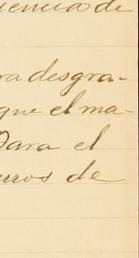 iencia de
ra desgra-
que el ma-
Para el
uros de